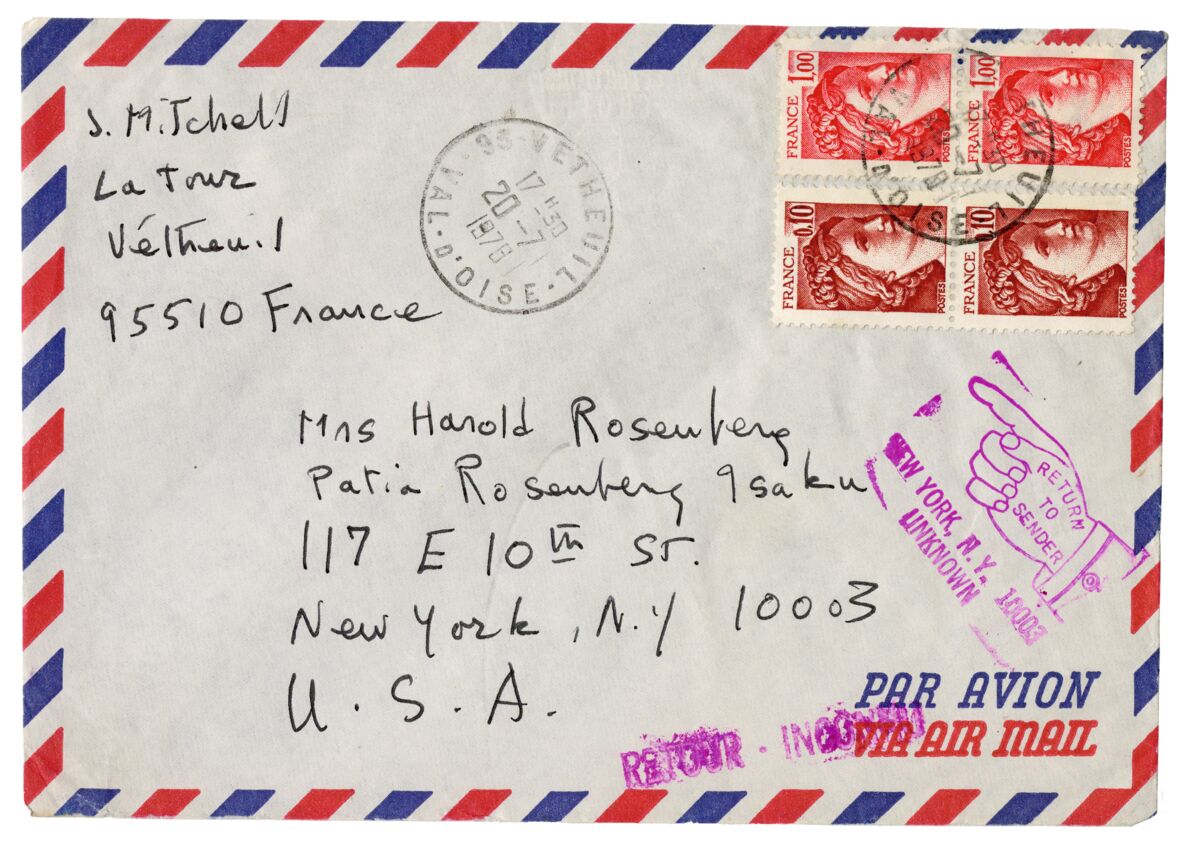 J. Mitchell
La Tour
Vétheuil
95510 France
95-VETHEUIL
17H30
20-7
1978
VAL-D'OISE
1,00
FRANCE
POSTES
1,00
FRANCE
POSTES
0,10
FRANCE
POSTES
0,10
FRANCE
POSTES
Mrs Harold Rosenberg
Patia Rosenberg Isaku
117 E 10th St.
New York, N.Y 10003
U.S.A.
RETURN
TO
SENDER
NEW YORK, N.Y. 10003
UNKNOWN
PAR AVION
VIA AIR MAIL
RETOUR - INCONNU